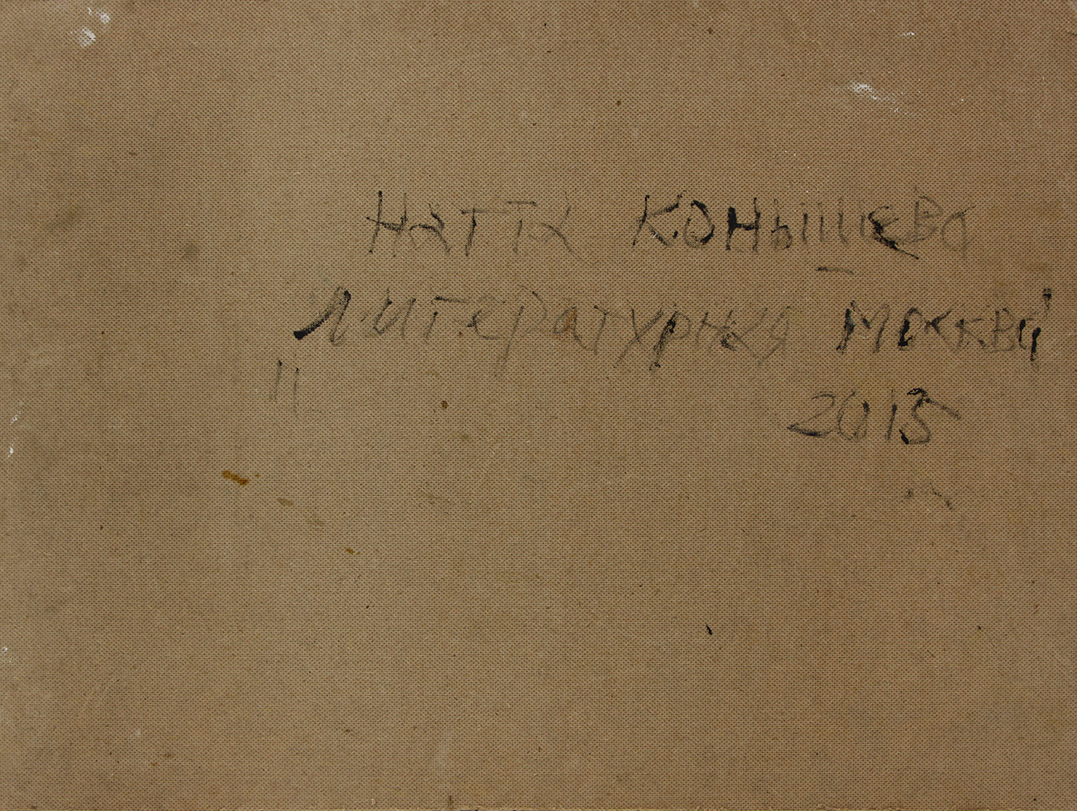 Натта Конышева
"Литературная Москва"
2015